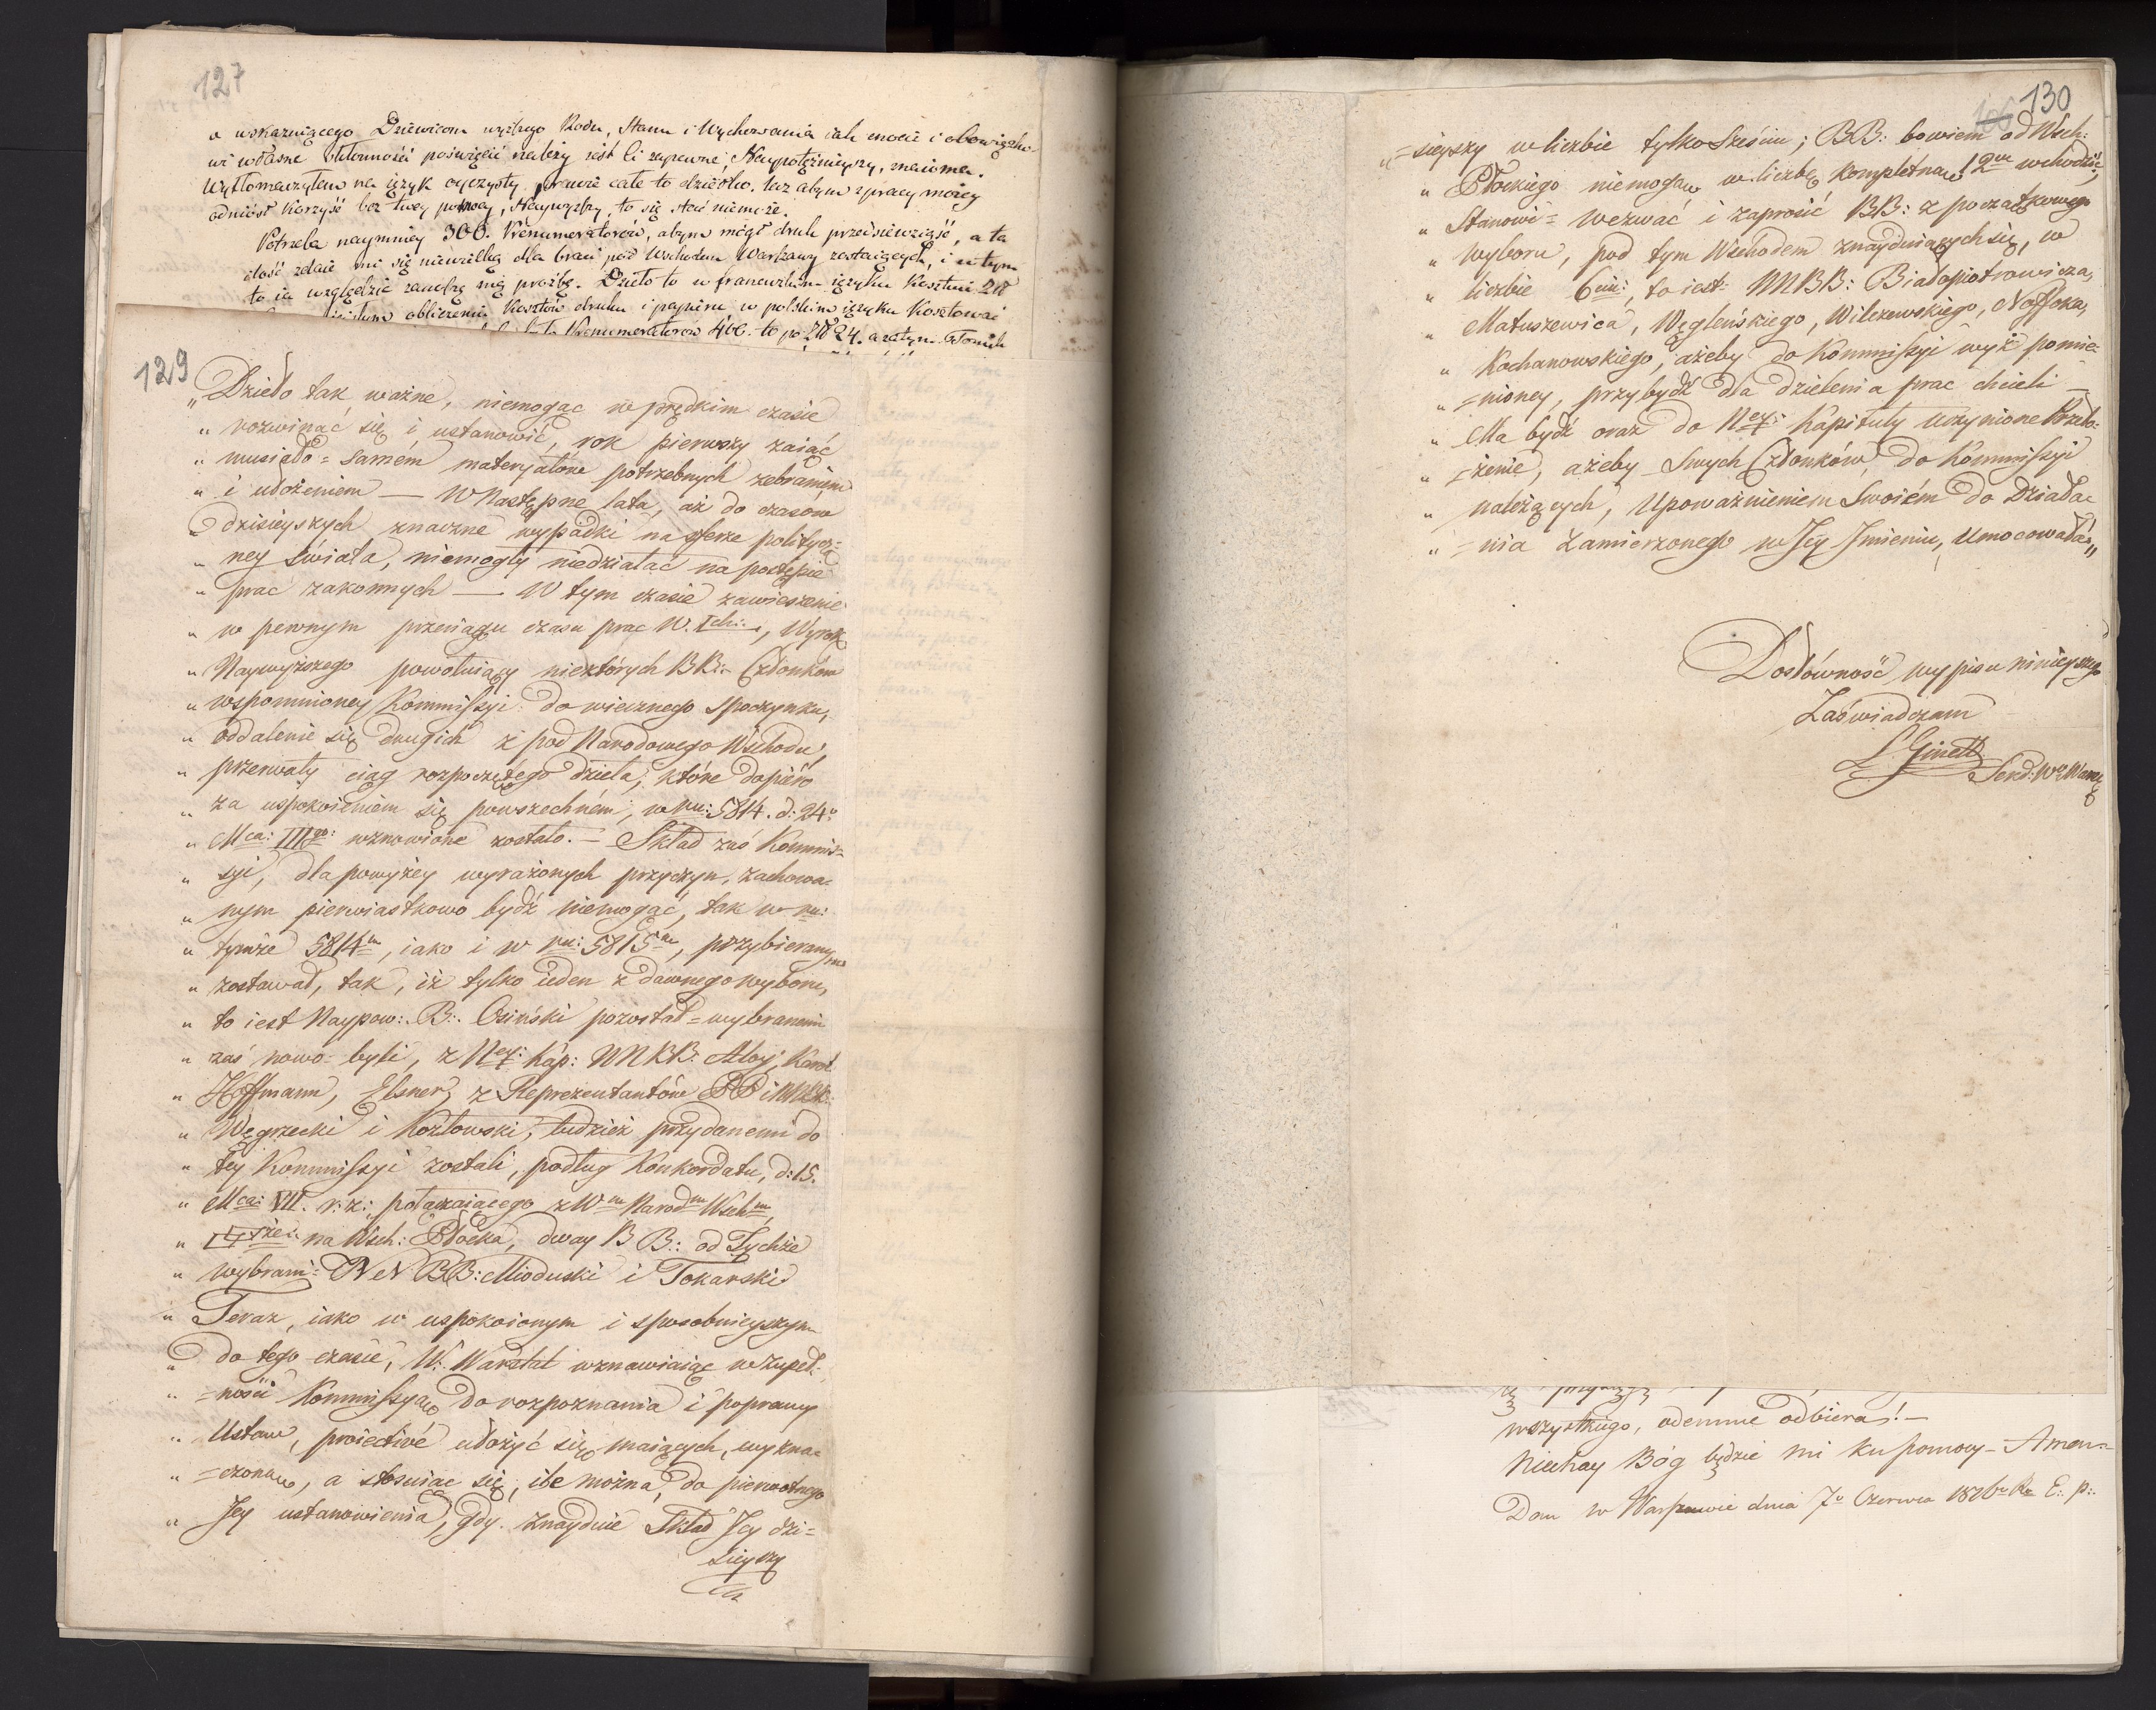 127
a wskazuiącego Dziewicom wyższego Rodu, Stanu i Wychowania iak cnocie i obowiązko-
wi własne skłonności poświęcić należy iest Ci zapewne, Naypotężnieyszy, znaioma.
Wytłomaczyłem na ięzyk oyczysty prawie całe to dziełko. lecz abym z pracy moiey
odniósł korzyść bez twey pomocy, Naywyższy, to się stać niemoże.
Potrzeba naymniey 300. Prenumeratorów, abym mógł druk przedsiewziąść, a ta
ilość zdaie mi się niewielką dla braci pod Wschodem Warszawy zostaiących, i w tym
to ia względzie zanoszę mą prośbę. Dzieło to w francuzkim ięzyku kosztuie
obliczeniu kosztów druku i papieru w polskim ięzyku kosztować
Prenumeratorów 400. to po 24. a zatym Tomik
129
„Dzieło tak ważne, niemogąc w prędkim czasie
„ rozwinąć się i ustanowić, rok pierwszy zaiąć
„ musiało = samem materyałów potrzebnych zebraniem
„ i ułożeniem — W Następne lata, aż do czasów
„ dzisieyszych znaczne wypadki na sferze politycz=
„ ney świata, niemogły niedziałać na postępie
„ prac zakonnych — W tym czasie zawieszenie
„ w pewnym przeciągu czasu prac W. Wyrok
„ Naywyższego powołuiący niektórych BB:. Członków
„ wspomnioney Kommissyi do wiecznego Spoczynku,
„ oddalenie się drugich z pod Narodowego Wschodu,
„ przerwały ciąg rozpoczętego dzieła, które dopiéro
„ za uspokoieniem się powszechném, w ru: 5814. d: 24.
„ Mca: IIIgo: wznowione zostało. — Skład zaś Kommis=
„ syi, dla powyżey wyrażonych przyczyn, zachowa=
„ nym pierwiastkowo bydź niemogąc, tak w ru:
„ tymże 5814m, iako i w ru: 5815m, przybieranym
„ zostawał, tak, iż tylko ieden z dawnego wyboru,
„ to iest Naypow:. B:. Osiński pozostał = wybranemi
„ zaś nowo byli, z Ney: Kap: NNBB: Aloy: Karol
„ Hoffmann, Elsner, z Reprezentantów PP i
„ Węgrzecki i Kozłowski, tudzież przydanemi do
„ tey Kommissyi zostali, podług Konkordatu, d: 15.
„ Mca: VII. r: z: połączaiącego z Wm Narodm Wschm,
„ na Wsch: Płocka, dway BB:. od Tychże
„ wybrani = NN BB: Mioduski i Tokarski
„ Teraz, iako w uspokoionym i sposobnieyszym
„ do tego czasie, W. Warsztat wznawiaiąc w zupeł=
„ =ności Kommissyą do rozpoznania i poprawy
„ Ustaw, proiectivé ułożyć się maiących, wyzna=
„ =czoną, a stosuiąc się, ile można, do pierwotnego
„ Jey ustanowienia, gdy znayduie Skład Jey dzi=
sieyszy
130
„ =sieyszy w liczbie tylko Sześciu; BB: bowiem od Wsch:
„ Płockiego niemogą w liczbę kompletną 12u wchodzić,
„ Stanowi = wezwać i zaprosić BB: z początkowego
„ wyboru, pod tym Wschodem znayduiących się, w
„ liczbie 6ciu:, to iest: NNBB: Białopiotrowicza,
„ Matuszewica, Węgleńskiego, Wilczewskiego, Noffoka,
„ Kochanowskiego, ażeby do Kommissyi wyż pomie=
„ =nioney, przybydź dla dzielenia prac chcieli —
„ Ma bydź oraz do Ney: Kapituły uczynione Przeło=
„ =żenie, ażeby Swych Członków, do Kommissyi
„ należących, Upoważnieniem Swoiém do Działa=
„ =nia zamierzonego w Jey Imieniu, Umocowała„
Dosłowność wypisu ninieyszego
Zaświadczam
wszystkiego, odemnie odbiera! —
Niechay Bóg będzie mi ku pomocy — Amen —
Dan w Warszawie dnia 7o Czerwca 1816 Ro E: p:.